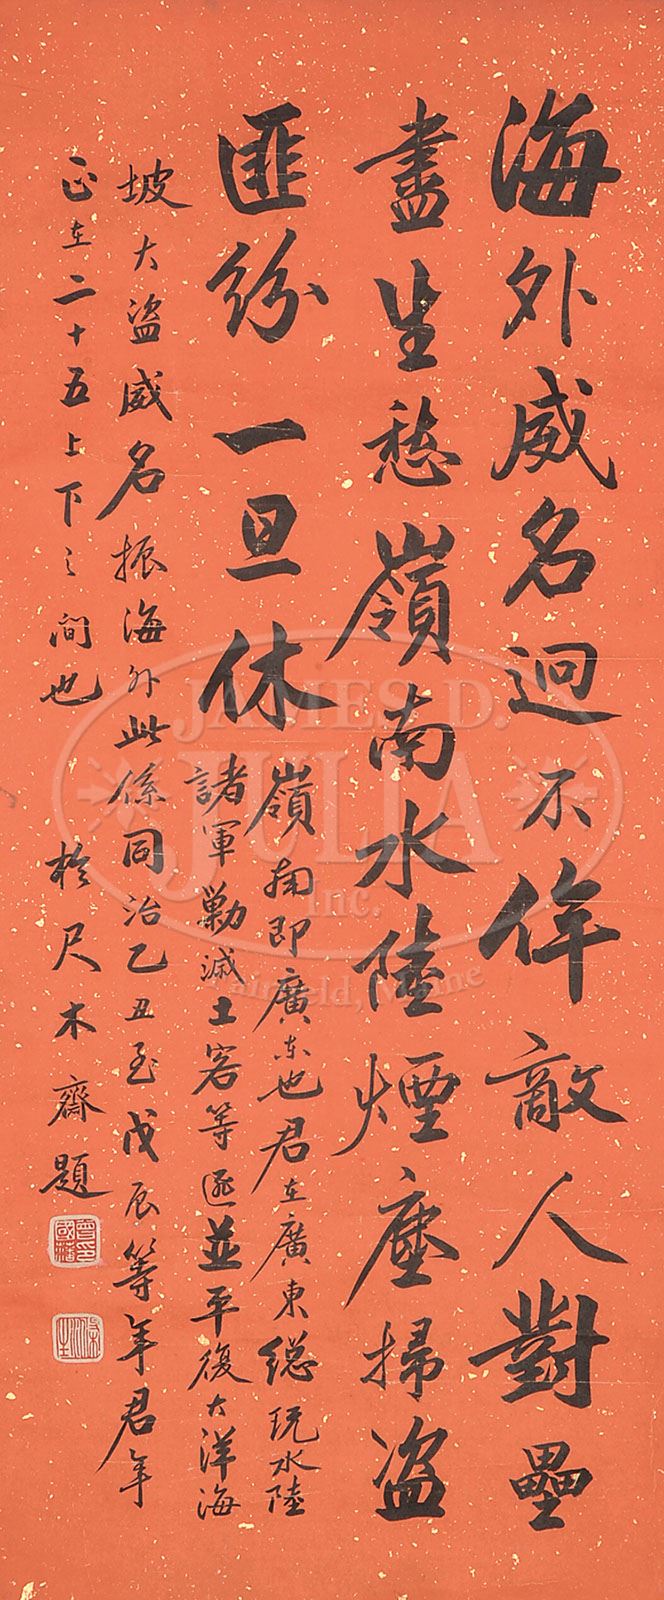 海外威名迥不侔敵人對壘
盡生愁嶺南水陸煙塵掃盜
匪紛一旦休
嶺南即廣東也君在廣東總玩水陸
諸軍勦滅土客等匪並平復大洋海
坡大盜威名振海外此係同治乙丑至戊辰等年君年
正在二十五上下之間也
於尺木齋題
JAMES D.
JULIA
Inc.
Fairfield, Maine